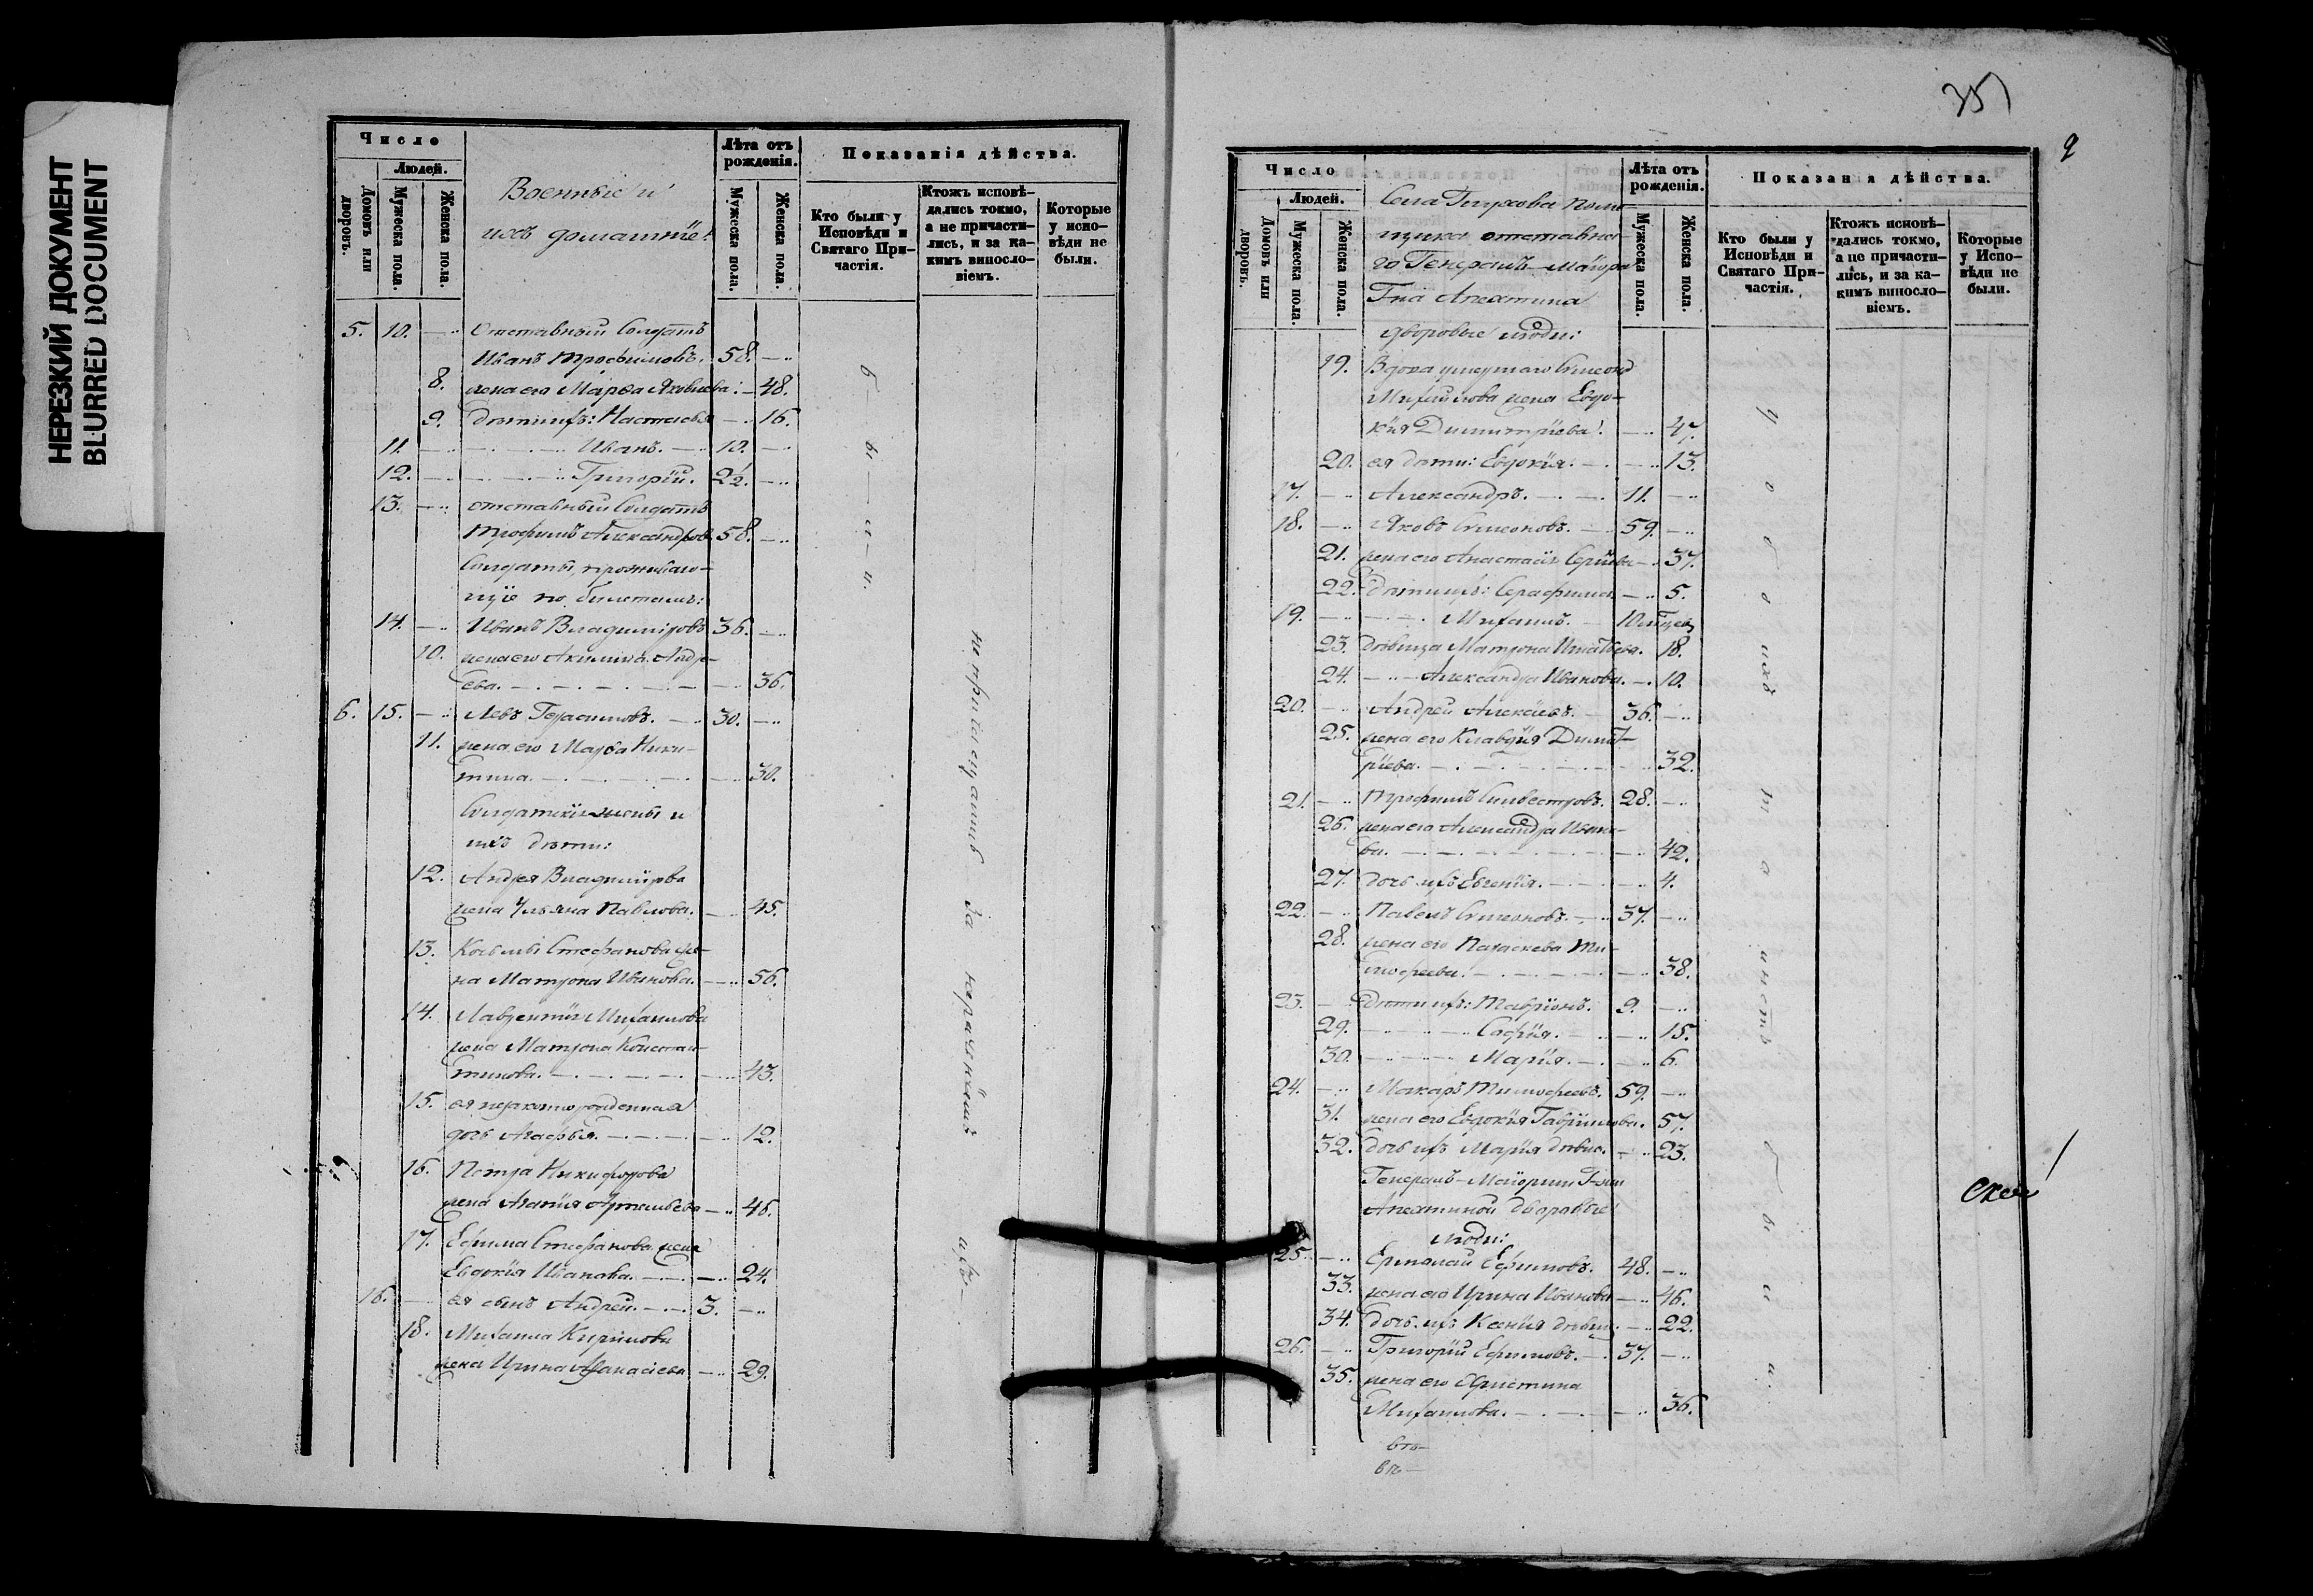 НЕРЕЗКИЙ ДОКУМЕНТ
BLURRED DOCUMENT
Число
Людей.
Домовъ или дворовъ.
Мужеска пола.
Женска пола.
Военные и
ихъ домашніе:
Лѣта отъ рожденія.
Мужеска пола.
Женска пола.
Показанія дѣйства.
Кто были у Исповѣди и Святаго Причастія.
Ктожъ исповѣ-
дались токмо,
а не причасти-
лись, и за ка-
кимъ виносло-
віемъ.
Которые у испо-
вѣди не были.
5. 10. Отставный Солдатъ
Иванъ Трофимовъ. 58.
8. жена его Марѳа Яковлева: 48.
9. дѣти ихъ: Настасья 16.
11. Иванъ. 10.
12. Григорій. 2½.
13. отставный Солдатъ
Трофимъ Александров. 58.
Солдаты, проживаю-
щіе по билетамъ:
14. Иванъ Владиміровъ 36.
10. жена его Акилина Андре-
ева. 36.
6. 15. Левъ Герасимовъ. 30.
11. жена его Марѳа Ники-
тина. 30.
Солдатскія жены и
ихъ дѣти:
12. Андрея Владимірова
жена Ульяна Павлова. 45.
13. Козьмы Стефанова же-
на Матрона Иванова. 56.
14. Лаврентія Михаилова
жена Матрона Констан-
тинова. 43.
15. ея незаконнорожденная
дочь Агафья. 12.
16. Петра Никифорова
жена Агапія Артемьева 46.
17. Ефима Стефанова жена
Евдокія Иванова. 24.
16. ея сынъ Андрей. 3.
18. Михаила Кирилова
жена Ирина Аѳанасіева 29.
б ы л и.
не причащались за нераченіемъ ихъ
351
9
Число
Людей.
Домовъ или дворовъ.
Мужеска пола.
Женска пола.
Села Глухова поме-
щика отставна-
го Генералъ-Маіора
Гна Апехтина
Лѣта отъ рожденія.
Мужеска пола.
Женска пола.
Показанія дѣйства.
Кто были у Исповѣди и Святаго Причастія.
Ктожъ исповѣ-
дались токмо,
а не причасти-
лись, и за ка-
кимъ виносло-
віемъ.
Которые у Испо-
вѣди не были.
дворовые люди:
19. Вдова умершаго Симеона
Михайлова жена Евдо-
кія Димитріева. 47.
20. ея дѣти: Евдокія. 13.
17. Александръ. 11.
18. Яковъ Симеоновъ. 59.
21. жена его Анастасія Сергіева 37.
22. дѣти ихъ: Серафима 5.
19. Михаилъ. 10
23. дѣвица Матрона Игнатьева. 18.
24. Александра Иванова. 10.
20. Андрей Алексѣевъ. 36.
25. жена его Клавдія Димит-
ріева. 32.
21. Трофимъ Силвестровъ. 28.
26. жена его Александра Ивано-
ва. 42.
27. дочь ихъ Евгенія. 4.
22. Павелъ Симеоновъ. 37.
28. жена его Параскева Ти-
моѳеева. 38.
23. дѣти ихъ: Тавріонъ. 9.
29. Софія. 15.
30. Марія. 6.
24. Макаръ Тимофеевъ. 59.
31. жена его Евдокія Гавріилова. 57.
32. дочь ихъ Марія дѣвиц. 23.
Генералъ-Маіорши Г-жи
Апехтиной дворовые
люди:
25. Ермолай Ефимовъ. 48.
33. жена его Ирина Иванова 46.
34. дочь ихъ Ксенія дѣвиц. 22.
26. Григорій Ефимовъ. 37.
35. жена его Христина
Михаилова. 36.